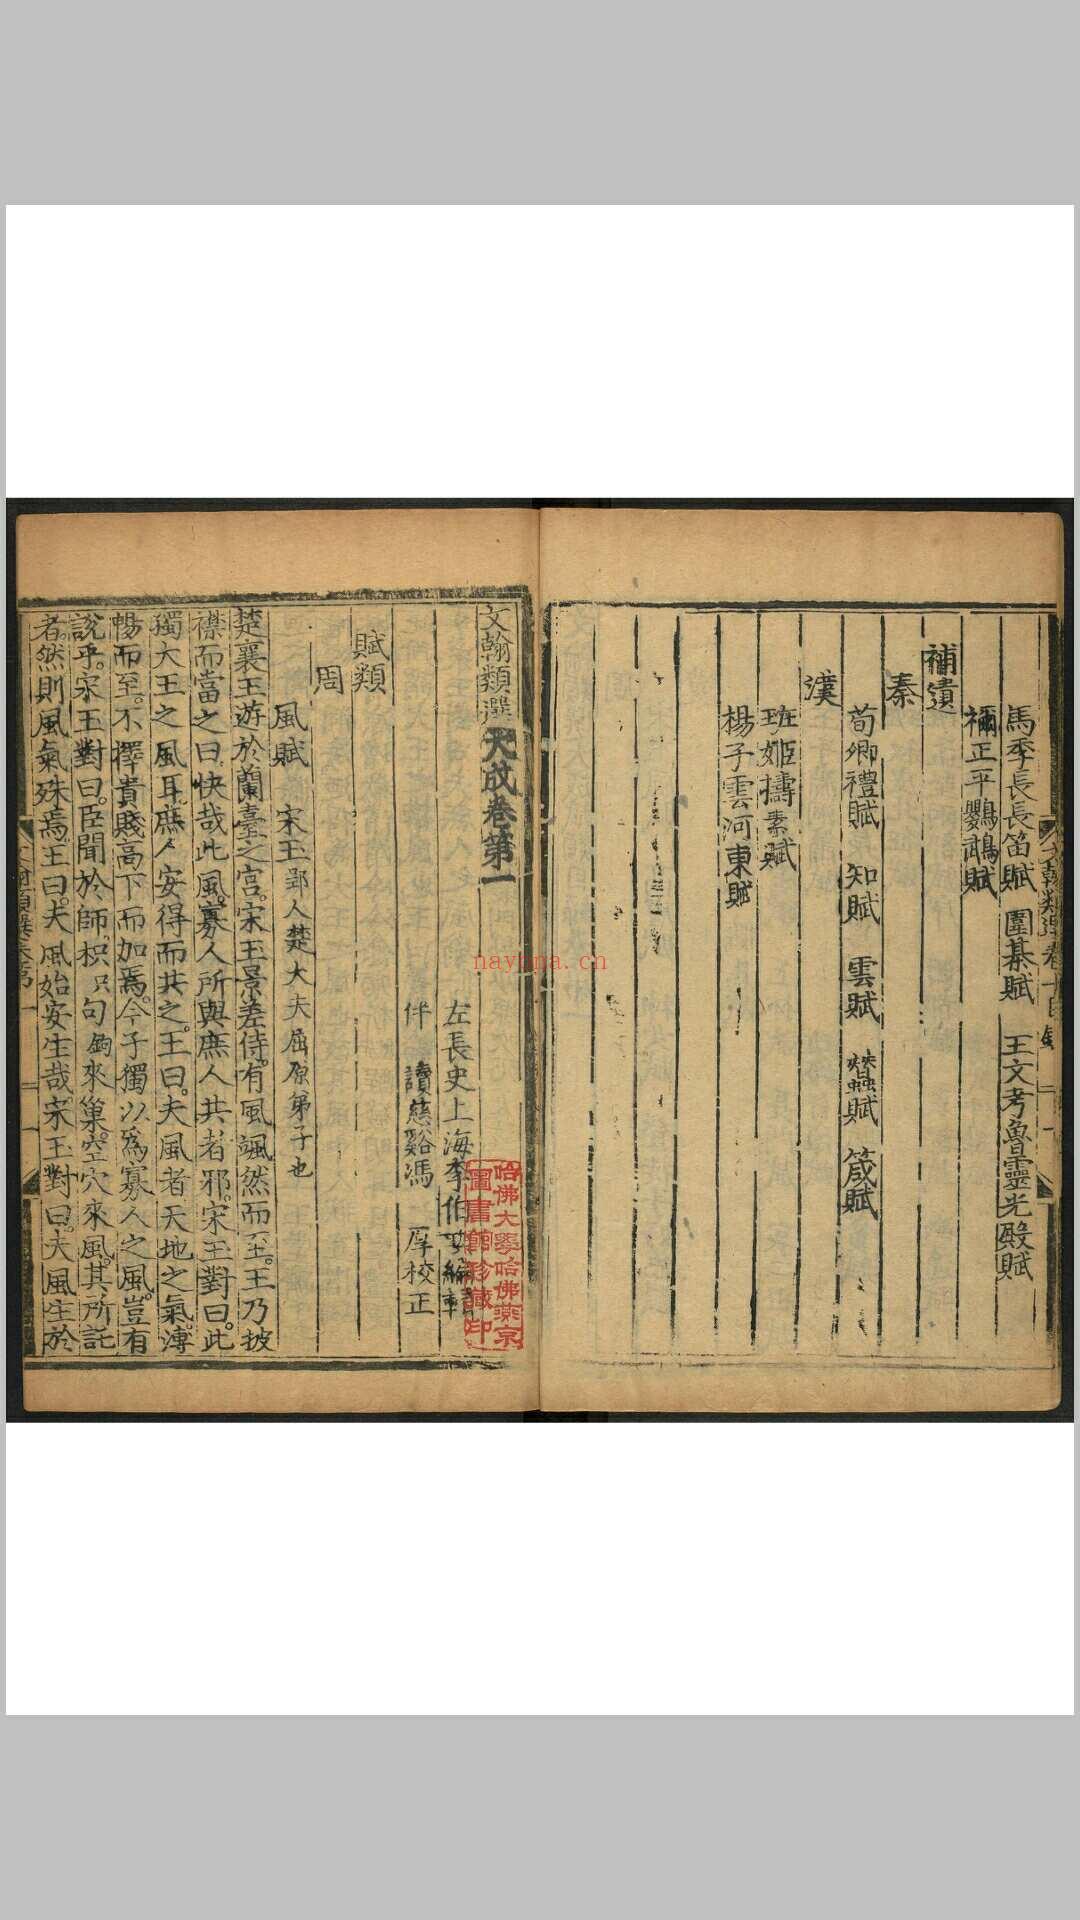 馬季長長笛賦 圍棊賦 王文考魯靈光殿賦
禰正平鸚鵡賦
補遺
秦
荀卿禮賦 知賦 雲賦 蠶賦 箴賦
漢
班姬擣素賦
楊子雲河東賦
文翰類選大成卷第一
左長史上海李伯璵編輯
伴讀慈谿馮厚校正
賦類
周
風賦 宋玉 郢人楚大夫屈原弟子也
楚襄王遊於蘭臺之宮宋玉景差侍有風颯然而至王乃披
襟而當之曰快哉此風寡人所與庶人共者邪宋玉對曰此
獨大王之風耳庶人安得而共之王曰夫風者天地之氣溥
暢而至不擇貴賤高下而加焉今子獨以為寡人之風豈有
說乎宋玉對曰臣聞於師枳只句鉤來巢空穴來風其所託
者然則風氣殊焉王曰夫風始安生哉宋玉對曰夫風生於
哈佛大學哈佛燕京
圖書館珍藏印
nayona.cn